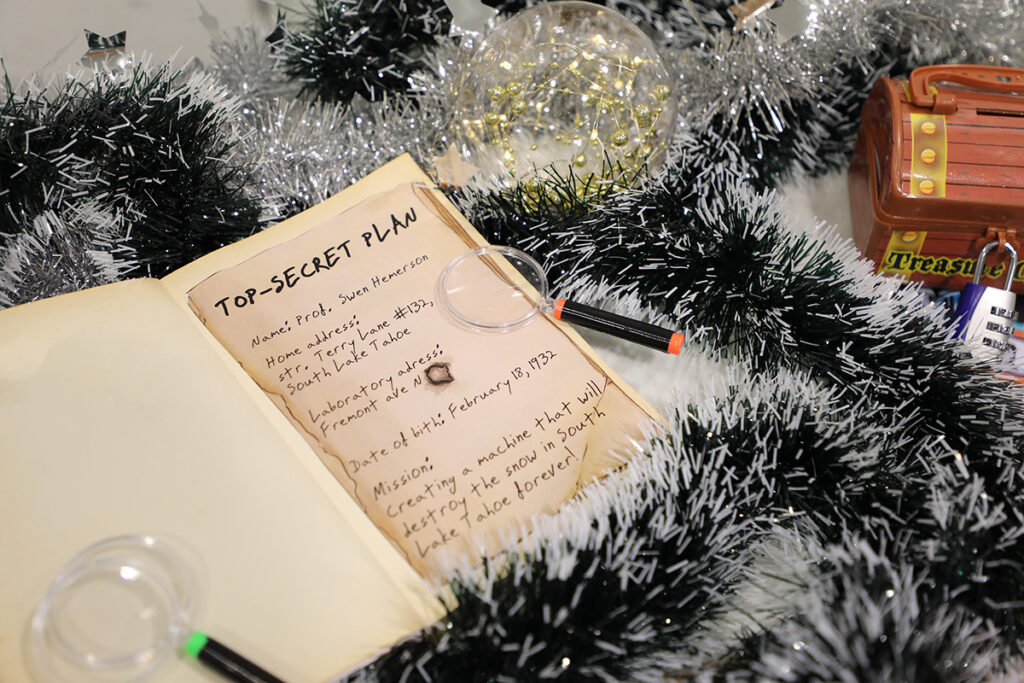 TOP-SECRET PLAN
Name: Prof. Swen Hemerson
Home address:
str. Terry Lane #132,
South Lake Tahoe
Laboratory adress:
Fremont ave N
Date of bith: February 18, 1932
Mission:
creating a machine that will
destroy the snow in South
Lake Tahoe forever!
Treasure